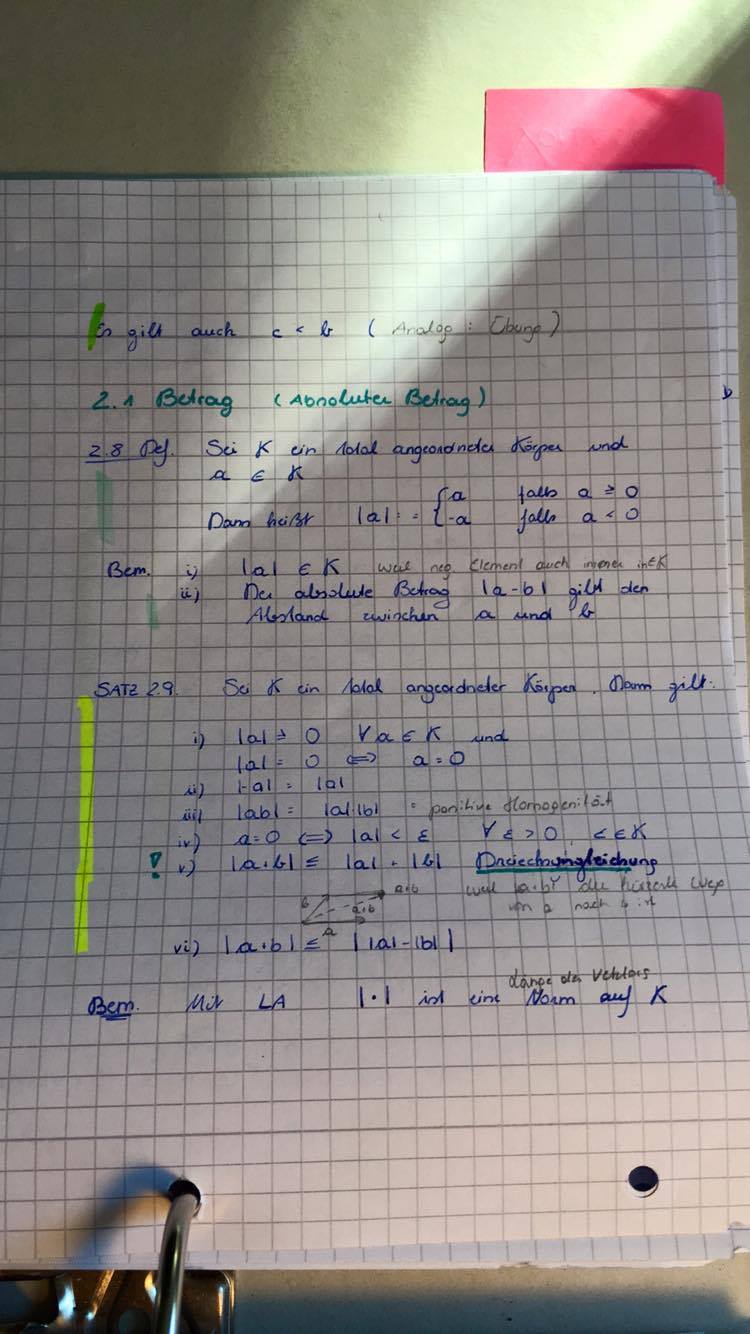 Es gilt auch c < b (Analog: Übung)
2.1 Betrag (Absoluter Betrag)
2.8 Def. Sei K ein total angeordneter Körper und
a ∈ K
Dann heißt |a| := { a falls a ≥ 0
-a falls a < 0
Bem. i) |a| ∈ K weil neg Element auch immer in K
ii) Der absolute Betrag |a-b| gibt den
Abstand zwischen a und b
SATZ 2.9. Sei K ein total angeordneter Körper. Dann gilt:
i) |a| ≥ 0 ∀a ∈ K und
|a| = 0 ⟺ a = 0
ii) |-a| = |a|
iii) |ab| = |a|·|b| = positive Homogenität
iv) a=0 ⟺ |a| < ε ∀ε > 0, ε ∈ K
! v) |a+b| ≤ |a| + |b| Dreiechungleichung
weil a+b die kürzeste Weg
von a nach b ist
b a+b a+b
a
vi) |a+b| ≤ ||a|-|b||
Länge des Vektors
Bem. Mit LA |·| ist eine Norm auf K